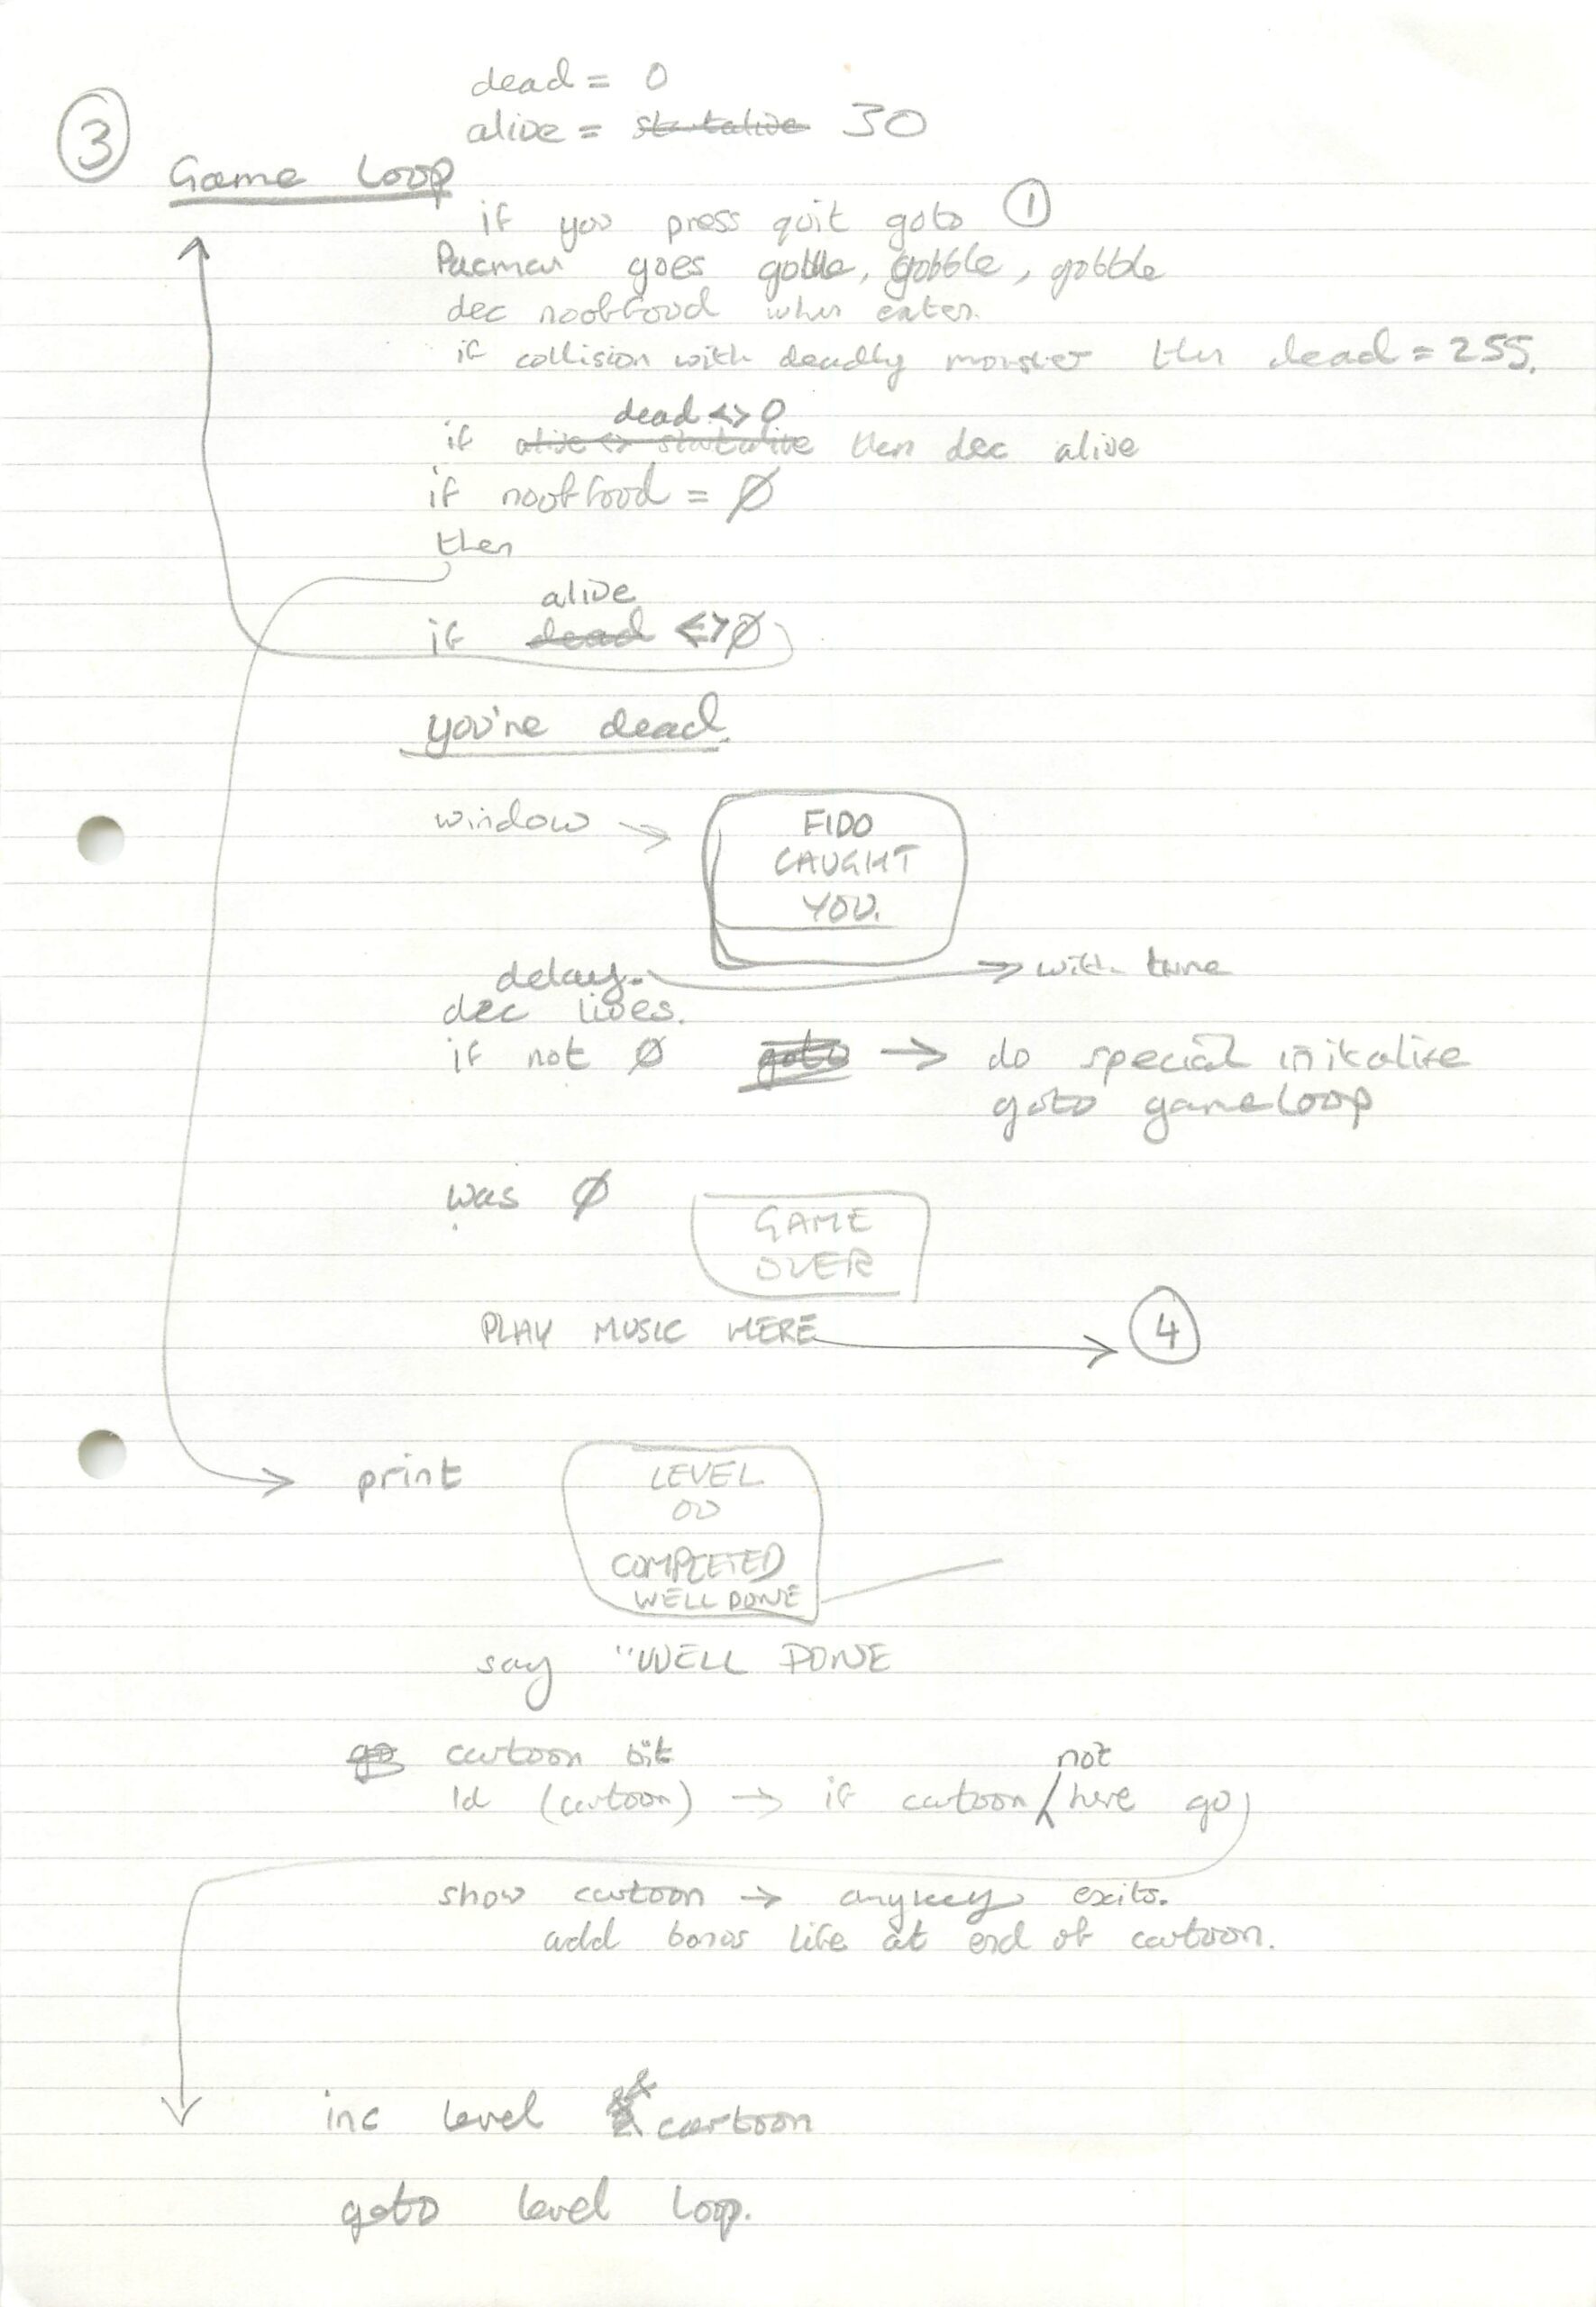 dead = 0
③
alive = startalive 30
Game Loop
if you press quit goto ①
Pacman goes gobble, gobble, gobble
dec nooffood when eaten.
if collision with deadly monster then dead = 255.
dead <> 0
if alive <> startalive then dec alive
if nooffood = Ø
then
alive
if dead <> Ø
you're dead.
window →
FIDO
CAUGHT
YOU.
delay. → with tune
dec lives.
if not Ø goto → do special initalise
goto gameloop
was Ø
GAME
OVER
PLAY MUSIC HERE → ④
print
LEVEL
00
COMPLETED
WELL DONE
say "WELL DONE
go cartoon bit
not
ld (cartoon) → if cartoon here go
show cartoon → anykey exits.
add bonus life at end of cartoon.
inc level & cartoon
goto level loop.